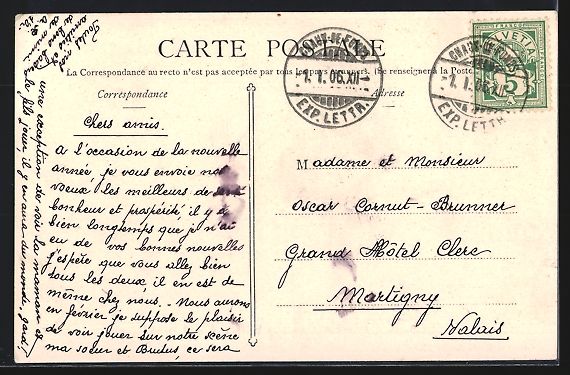 CARTE POSTALE
La Correspondance au recto n'est pas acceptée par tous les pays étrangers. (Se renseigner à la Poste.
Correspondance
Adresse
CHAUX-DE-FONDS
-1. 1. 06. XII-
EXP. LETTR.
CHAUX-DE-FONDS
-1. 1. 06. XII-
EXP. LETTR.
HELVETIA
5
Chers amis.
A l'occasion de la nouvelle
année, je vous envoie nos
vœux les meilleurs de santé
bonheur et prospérité il y a
bien longtemps que je n'ai
eu de vos bonnes nouvelles
j'espère que vous allez bien
tous les deux, il en est de
même chez nous. Nous aurons
en février je suppose le plaisir
de voir jouer sur notre scène
ma soeur et Brutus, ce sera
une exception de voir la maman et
la fille jouer, il y en aura du monde, gard.
Madame et Monsieur
Oscar Cornut-Brunner
Grand Hôtel Clerc
Martigny
Valais